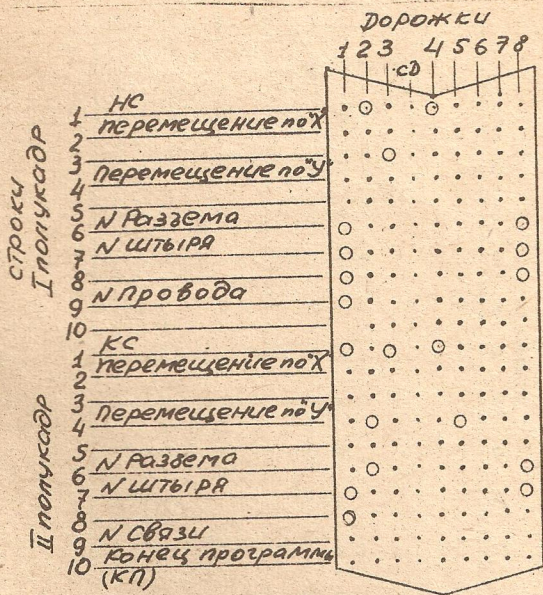 Дорожки
1 2 3 СД 4 5 6 7 8
строки
I полукадр
1 НС
Перемещение по "X"
2
3
Перемещение по "У"
4
5
N Разъема
6
N штыря
7
8
N Провода
9
10
II полукадр
КС
1
Перемещение по "X"
2
3
Перемещение по "У"
4
5
N Разъема
6
N штыря
7
8
N Связи
9
Конец программы
10
(КП)